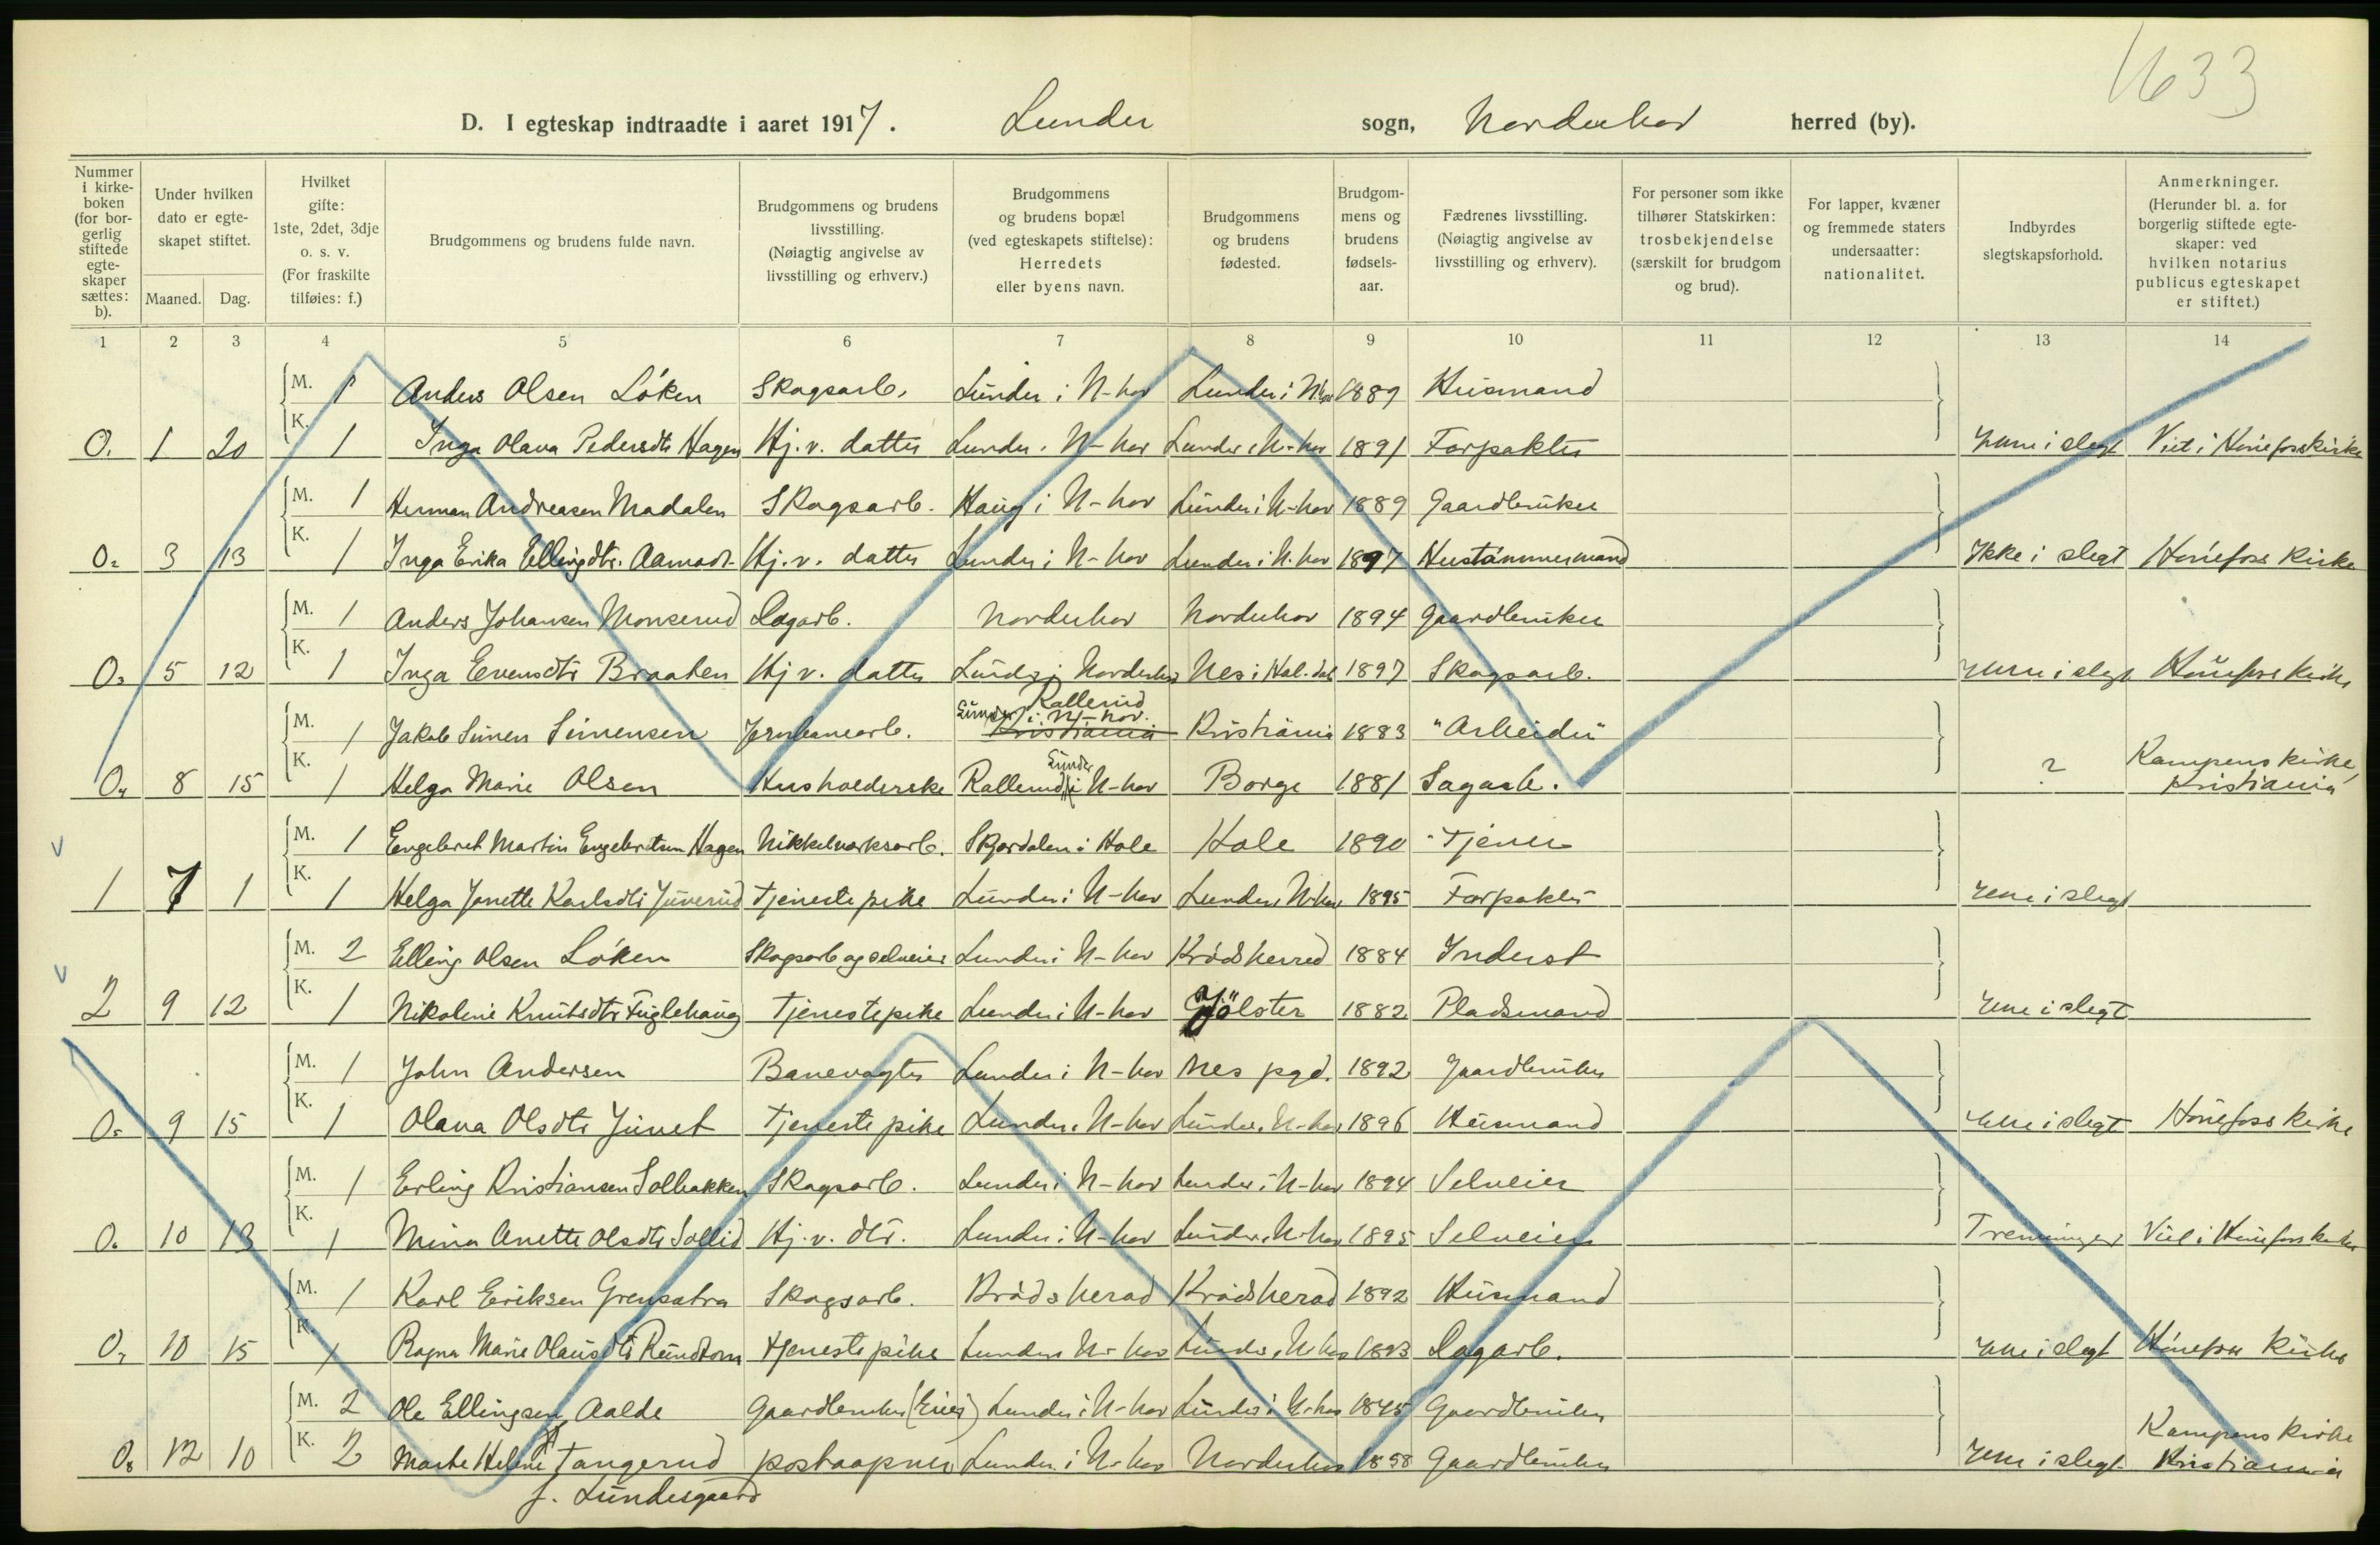 1633
D. I egteskap indtraadte i aaret 1917. Lunder sogn, Norderhov herred (by).
Nummer i kirkeboken (for borgerlig stiftede egteskaper sættes: b).
Under hvilken dato er egteskapet stiftet.
Maaned. Dag.
Hvilket gifte: 1ste, 2det, 3dje o. s. v. (For fraskilte tilføies: f.)
Brudgommens og brudens fulde navn.
Brudgommens og brudens livsstilling. (Nøiagtig angivelse av livsstilling og erhverv.)
Brudgommens og brudens bopæl (ved egteskapets stiftelse): Herredets eller byens navn.
Brudgommens og brudens fødested.
Brudgommens og brudens fødselsaar.
Fædrenes livsstilling. (Nøiagtig angivelse av livsstilling og erhverv).
For personer som ikke tilhører Statskirken: trosbekjendelse (særskilt for brudgom og brud).
For lapper, kvæner og fremmede staters undersaatter: nationalitet.
Indbyrdes slegtskapsforhold.
Anmerkninger. (Herunder bl. a. for borgerlig stiftede egteskaper: ved hvilken notarius publicus egteskapet er stiftet.)
1 2 3 4 5 6 7 8 9 10 11 12 13 14
M. 1 Anders Olsen Løken Skogsarb. Lunder i N-hov Lunder i N.hov 1889 Husmand
0. 1 20 K. 1 Inga Olava Pedersdtr Hagen Hj. v. datter Lunder i N-hov Lunder i N-hov 1891 Forpakter Ikke i slegt Viet i Hønefoss kirke
M. 1 Herman Andreasen Madalen Skogsarb. Haug i N-hov Lunder i N-hov 1889 Gaardbruker
02 3 13 K. 1 Inga Erika Ellingdtr. Aamodt Hj. v. datter Lunder i N-hov Lunder i N.hov 1897 Hustømmermand Ikke i slegt Hønefoss kirke
M. 1 Anders Johansen Monserud Sagarb. Norderhov Norderhov 1894 Gaardbruker
03 5 12 K. 1 Inga Evensdtr Braaten Hj v. datter Lunder i Norderhov Nes i Hal.dal 1897 Skogsarb. Ikke i slegt Hønefoss kirke
Rallerud
M. 1 Jakob Simen Simensen Jernbanearb. Lunder i N-hov. Kristiania Kristiania 1883 "Arbeider"
04 8 15 K. 1 Helga Marie Olsen Husholderske Rallerud Lunder i N-hov Borge 1881 Sagarb. ? Kampens kirke, Kristiania
M. 1 Engebret Martin Engebretsen Hagen Nikkelverksarb. Skjordalen i Hole Hole 1890 Tjener
1 7 1 K. 1 Helga Jonette Karlsdtr Juverud Tjenestepike Lunder i N-hov Lunder i N-hov 1895 Forpakter Ikke i slegt
M. 2 Elling Olsen Løken Skogsarb og selveier Lunder i N-hov Krødsherred 1884 Inderst
2 9 12 K. 1 Nikoline Knutsdtr Fuglehaug Tjenestepike Lunder i N-hov Jølster 1882 Pladsmand Ikke i slegt
M. 1 John Andersen Banevogter Lunder i N-hov Nes pgd. 1892 Gaardbruker
05 9 15 K. 1 Olava Olsdtr Juvet Tjenestepike Lunder i N-hov Lunder i N-hov 1896 Husmand Ikke i slegt Hønefoss kirke
M. 1 Erling Kristiansen Solbakken Skogsarb. Lunder i N-hov Lunder i N-hov 1894 Selveier
06 10 13 K. 1 Mina Anette Olsdtr Sollid Hj. v. dtr. Lunder i N-hov Lunder i N-hov 1895 Selveier Tremninger Viet i Hønefoss kirke
M. 1 Karl Eriksen Grensætra Skogsarb. Krødsherad Krødsherad 1892 Husmand
07 10 15 K. 1 Ragna Marie Olausdtr Rundtom Tjenestepike Lunder i N-hov Lunder i N-hov 1893 Sagarb. Ikke i slegt Hønefoss kirke
M. 2 Ole Ellingsen Aalde Gaardbruker (Eier) Lunder i N-hov Lunder i N-hov 1845 Gaardbruker
08 12 10 K. 2 Marte Helene Tangerud postaapner Lunder i N-hov Norderhov 1858 Gaardbruker Ikke i slegt Kampens kirke Kristiania
f. Lundesgaard